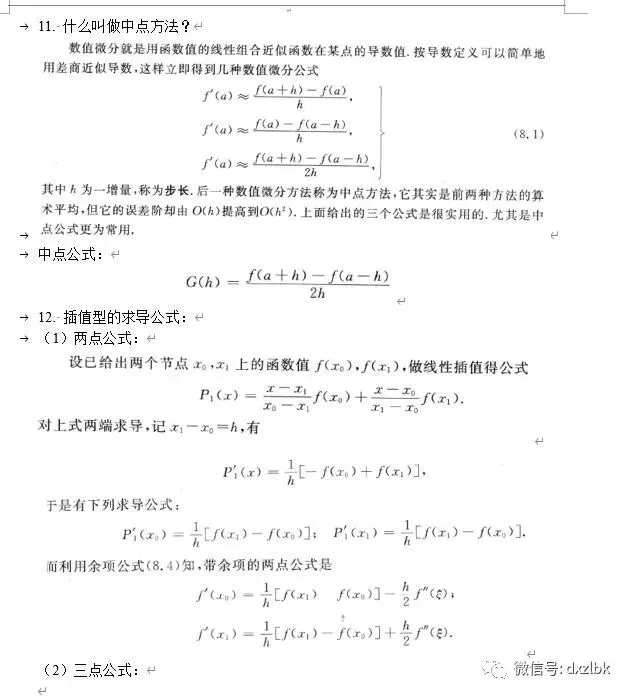 11. 什么叫做中点方法？
数值微分就是用函数值的线性组合近似函数在某点的导数值. 按导数定义可以简单地
用差商近似导数,这样立即得到几种数值微分公式
f′(a) ≈ \frac{f(a+h) − f(a)}{h},
f′(a) ≈ \frac{f(a) − f(a−h)}{h},
f′(a) ≈ \frac{f(a+h) − f(a−h)}{2h},
(8.1)
其中 h 为一增量,称为步长. 后一种数值微分方法称为中点方法,它其实是前两种方法的算
术平均,但它的误差阶却由 O(h)提高到O(h²). 上面给出的三个公式是很实用的. 尤其是中
点公式更为常用.
中点公式：
G(h) = \frac{f(a+h) − f(a−h)}{2h}
12. 插值型的求导公式：
（1）两点公式：
设已给出两个节点 x₀,x₁ 上的函数值 f(x₀),f(x₁),做线性插值得公式
P₁(x) = \frac{x−x₁}{x₀−x₁}f(x₀) + \frac{x−x₀}{x₁−x₀}f(x₁).
对上式两端求导,记 x₁−x₀=h,有
P′₁(x) = \frac{1}{h}[−f(x₀)+f(x₁)],
于是有下列求导公式:
P′₁(x₀) = \frac{1}{h}[f(x₁)−f(x₀)]; P′₁(x₁) = \frac{1}{h}[f(x₁)−f(x₀)].
而利用余项公式(8.4)知,带余项的两点公式是
f′(x₀) = \frac{1}{h}[f(x₁) f(x₀)]−\frac{h}{2}f″(ξ);
f′(x₁) = \frac{1}{h}[f(x₁)−f(x₀)]+\frac{h}{2}f″(ξ).
（2）三点公式：
微信号: dxzlbk